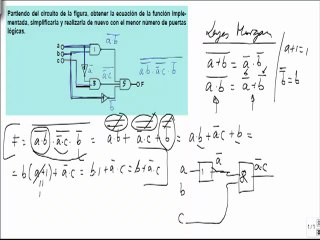 Partiendo del circuito de la figura, obtener la ecuación de la función imple-
mentada, simplificarla y realizarla de nuevo con el menor número de puertas
lógicas.
Leyes Morgan
a+b̅ = a̅·b̅
a·b̅ = a̅+b̅
a+1=1
b̿=b
a
b
c
1
3
5
F
a̅
b̅
F = = a·b + a̅·c + b = a·b + a̅c + b =
= b(a+1) + a̅·c = b·1 + a̅c = b + a̅·c
a
b
c
1
2
a̅
a̅c
1/1